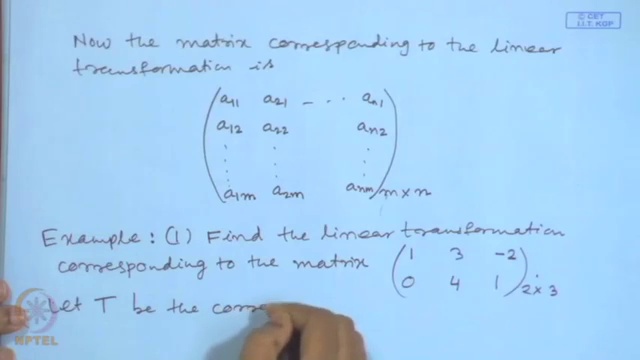 © CET
I.I.T. KGP
Now the matrix corresponding to the linear
transformation is
a11 a21 - ... an1
a12 a22 an2
a1m a2m anm m×n
Example: (1) Find the linear transformation
corresponding to the matrix (1 3 -2
0 4 1) 2×3
Let T be the corre
NPTEL